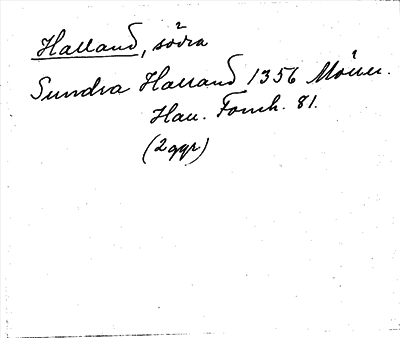 Halland, södra
Sundra Halland 1356 Möller.
Hall. Fornh. 81.
(2 ggr)